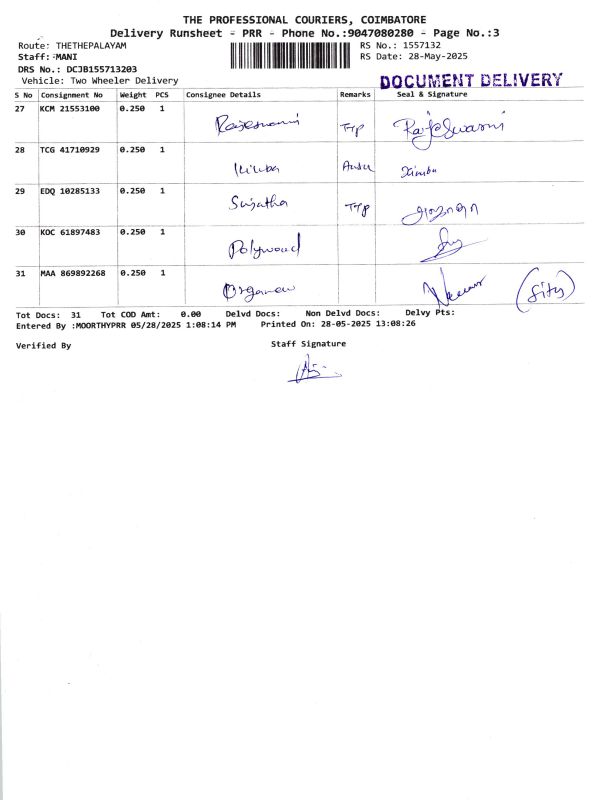 THE PROFESSIONAL COURIERS, COIMBATORE
Delivery Runsheet - PRR - Phone No.:9047080280 - Page No.:3
Route: THETHEPALAYAM RS No.: 1557132
Staff: MANI RS Date: 28-May-2025
DRS No.: DCJB155713203
Vehicle: Two Wheeler Delivery DOCUMENT DELIVERY
S No Consignment No Weight PCS Consignee Details Remarks Seal & Signature
27 KCM 21553100 0.250 1 Rajeswari TYP Rajeswari
28 TCG 41710929 0.250 1
29 EDQ 10285133 0.250 1 Sujatha TYP
30 KOC 61897483 0.250 1 Polywood
31 MAA 869892268 0.250 1
Tot Docs: 31 Tot COD Amt: 0.00 Delvd Docs: Non Delvd Docs: Delvy Pts:
Entered By :MOORTHYPRR 05/28/2025 1:08:14 PM Printed On: 28-05-2025 13:08:26
Verified By Staff Signature